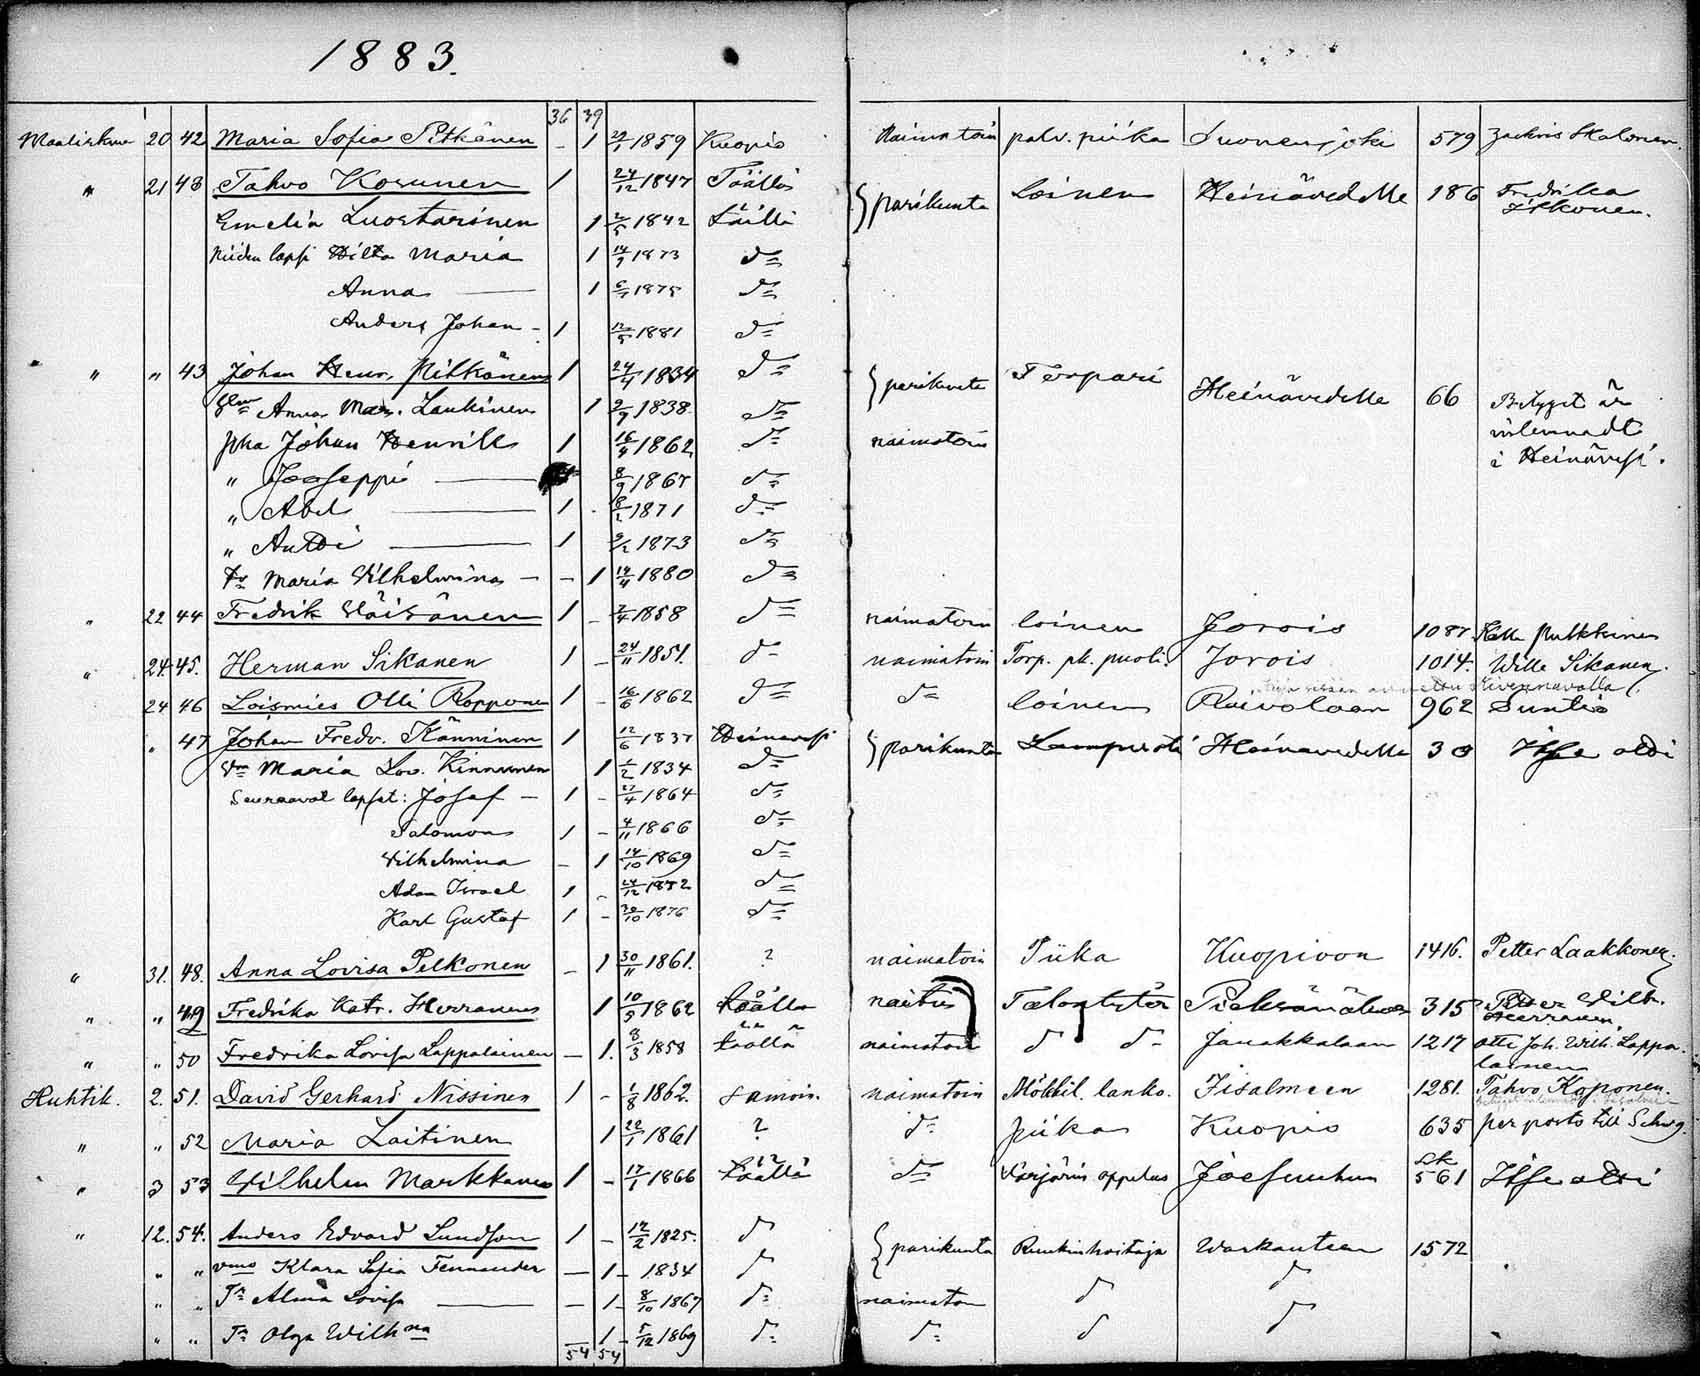 1883.
36 39
Maaliskuu 20 42 Maria Sofia Pitkänen - 1 1859 Kuopio Naimatoin palv. piika Suonenjoki 579 Zackris Halonen.
" 21 43 Tahvo Kosunen 1 24/12 1847 Täällä } parikunta loinen Heinävedelle 186 Fredrika Itkonen.
Emelia Luostarinen 1 1842 täällä
Niiden lapsi Hilta Maria 1 1873 d=
Anna — 1 d=
Anders Johan - 1 12/5 1881 d=
" " 43 Johan Henr. Pitkänen 1 24/4 1834 d= } parikunta Torpari Heinävedelle 66 Betyget är
Anna Mar. Laukinen 1 2/9 1838 d= inlemnadt
pka Johan Henrik 1 16/4 1862 d= naimatoin i Heinävesi.
" Jooseppi — 8/9 d=
" Abel — 1 8/2 1871 d=
" Antti — 1 2/2 1873 d=
Tr Maria Vilhelmina - - 1 14/4 1880 d=
" 22 44 Fredrik Väisänen 1 - 2/4 1858 d= naimatoin loinen Jorois 1087 Kalle Pulkkinen
" 24 45. Herman Sikanen 1 - 24/11 1851. d= naimatoin Torp. pk. puoli. Jorois 1014. Wille Sikanen.
24 46 Loismies Olli Roppone 1 - 16/6 1862 d= d= loinen Raivolaan 962 Suntio
" 47 Johan Fredr. Känninen 1 12/6 1837 Heinävesi } parikunta Lampuoti Heinävedelle 30 Itse otti
Vm Maria Lov. Kinnunen 1 1/2 1834 d=
Seuraavat lapset: Josef - 1 - 27/4 1864 d=
Salomon 1 - 4/11 1866 d=
Vilhelmina - 1 14/10 1869 d=
Adam Israel 1 - 24/12 1872 d=
Karl Gustaf 1 - 30/10 1876 d=
" 31. 48. Anna Lovisa Pelkonen - 1 30/11 1861. ? naimatoin Piika Kuopioon 1416. Petter Laakkonen.
" " 49 Fredrika Katr. Herranen 1 10/5 1862 täällä naitu Talontytär Pieksämälle 315 Petter Wilh. Herranen.
" " 50 Fredrika Lovisa Lappalainen - 1. 8/3 1858 täällä naimatoin d d= Janakkalaan 1217 otti Joh. Wilh. Lappalainen
Huhtik. 2. 51. David Gerhard Nissinen 1 - 1/8 1862. samoin. naimatoin Mökkil. lanko. Iisalmeen 1281. Tahvo Koponen.
" " 52 Maria Laitinen 1 22/1 1861 ? d= piika Kuopio 635 per posto till Schwg.
" 3 53 Vilhelm Markkanen 1 - 17/1 1866 täällä d= Värjärin oppilas Joefsuuhun 561 Itse otti
" 12. 54. Anders Edvard Lundson 1 - 12/2 1825. d } parikunta Ruukinhoitaja Warkauteen 1572
" " vmo Klara Sofia Fennander - 1 - 1834 d d
" " Tr Alma Lovisa — - 1 - 8/10 1867 d= naimaton d
" " Tr Olga Wilhna 1 - 5/12 1869 d= d= d d
54 54